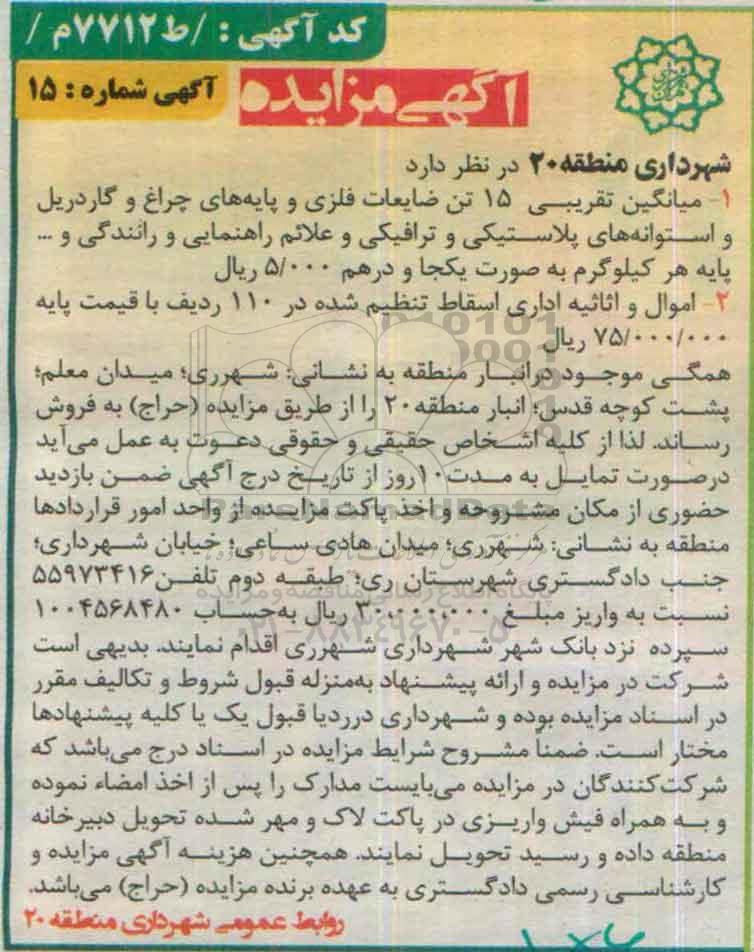 کد آگهی: /ط۷۷۱۲م/
آگهی شماره: ۱۵
آگهی مزایده
شهرداری منطقه۲۰ در نظر دارد
۱- میانگین تقریبی ۱۵ تن ضایعات فلزی و پایه‌های چراغ و گاردریل
و استوانه‌های پلاستیکی و ترافیکی و علائم راهنمایی و رانندگی و ...
پایه هر کیلوگرم به صورت یکجا و درهم ۵/۰۰۰ ریال
۲- اموال و اثاثیه اداری اسقاط تنظیم شده در ۱۱۰ ردیف با قیمت پایه
۷۵/۰۰۰/۰۰۰ ریال
همگی موجود درانبار منطقه به نشانی: شهرری؛ میدان معلم؛
پشت کوچه قدس؛ انبار منطقه۲۰ را از طریق مزایده (حراج) به فروش
رساند. لذا از کلیه اشخاص حقیقی و حقوقی دعوت به عمل می‌آید
درصورت تمایل به مدت۱۰روز از تاریخ درج آگهی ضمن بازدید
حضوری از مکان مشروحه و اخذ پاکت مزایده از واحد امور قراردادها
منطقه به نشانی: شهرری؛ میدان هادی ساعی؛ خیابان شهرداری؛
جنب دادگستری شهرستان ری؛ طبقه دوم تلفن۵۵۹۷۳۴۱۶
نسبت به واریز مبلغ ۳۰،۰۰۰،۰۰۰ ریال به‌حساب ۱۰۰۴۵۶۸۴۸۰
سپرده نزد بانک شهر شهرداری شهرری اقدام نمایند. بدیهی است
شرکت در مزایده و ارائه پیشنهاد به‌منزله قبول شروط و تکالیف مقرر
در اسناد مزایده بوده و شهرداری درردیا قبول یک یا کلیه پیشنهادها
مختار است. ضمناً مشروح شرایط مزایده در اسناد درج می‌باشد که
شرکت‌کنندگان در مزایده می‌بایست مدارک را پس از اخذ امضاء نموده
و به همراه فیش واریزی در پاکت لاک و مهر شده تحویل دبیرخانه
منطقه داده و رسید تحویل نمایند. همچنین هزینه آگهی مزایده و
کارشناسی رسمی دادگستری به عهده برنده مزایده (حراج) می‌باشد.
روابط عمومی شهرداری منطقه ۲۰
۰۲۱-۸۸۳۴۹۶۷۰-۵